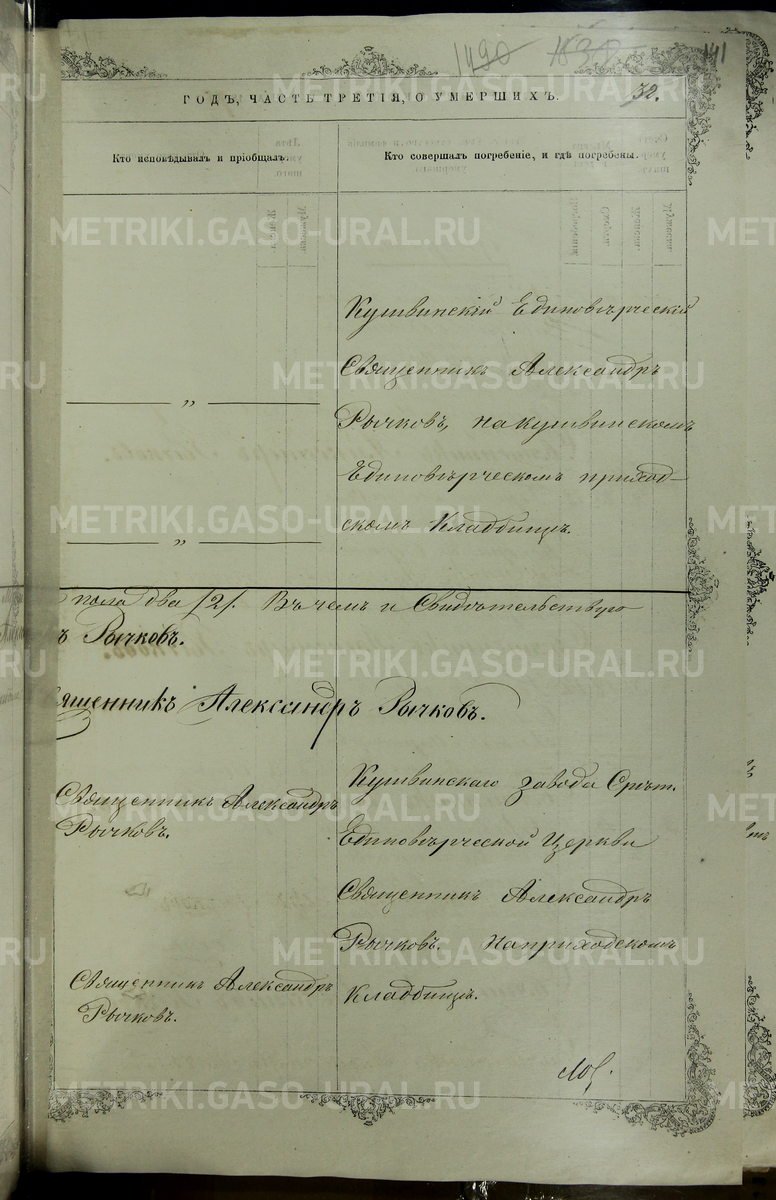 1490 1839 141
ГОДЪ, ЧАСТЬ ТРЕТІЯ, О УМЕРШИХЪ. 32.
Кто исповѣдывалъ и пріобщалъ.
Кто совершалъ погребеніе, и гдѣ погребены.
Кушвинскій Единовѣрческій
Священникъ Александръ
Рычковъ, на Кушвинскомъ
Единовѣрческомъ приход-
скомъ Кладбищѣ.
„
„
пола два /2/. Въ чемъ и Свидѣтельствую
ъ Рычковъ.
ященникъ Александръ Рычковъ.
Священникъ Александръ
Рычковъ.
Священникъ Александръ
Рычковъ.
Кушвинскаго завода Срѣт.
Единовѣрческой Церкви
Священникъ Александръ
Рычковъ. На приходскомъ
Кладбищѣ.
METRIKI.GASO-URAL.RU